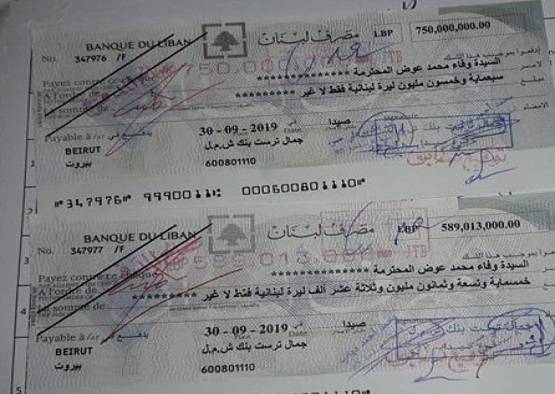 BANQUE DU LIBAN مصرف لبنان LBP 750,000,000.00
No. 347976 /F
750.000.00 JTB
Payez contre ce
السيدة وفاء محمد عوض المحترمة **************
A l'ordre de لأمر
سبعماية وخمسون مليون ليرة لبنانية فقط لا غير *********
la somme de مبلغ
Payable à يدفع في 30 - 09 - 2019 في صيدا الامضاء
Date
BEIRUT جمال ترست بنك ش.م.ل
بيروت 600801110
347976 999001 000600801110
BANQUE DU LIBAN مصرف لبنان LBP 589,013,000.00
No. 347977 /F
589.013.0 JTB
Payez contre ce chèque
السيدة وفاء محمد عوض المحترمة **************
A l'ordre de
خمسماية وتسعة وثمانون مليون وثلاثة عشر ألف ليرة لبنانية فقط لا غير
la somme de
Payable à يدفع في 30 - 09 - 2019 صيدا
Date
BEIRUT جمال ترست بنك ش.م.ل
بيروت 600801110